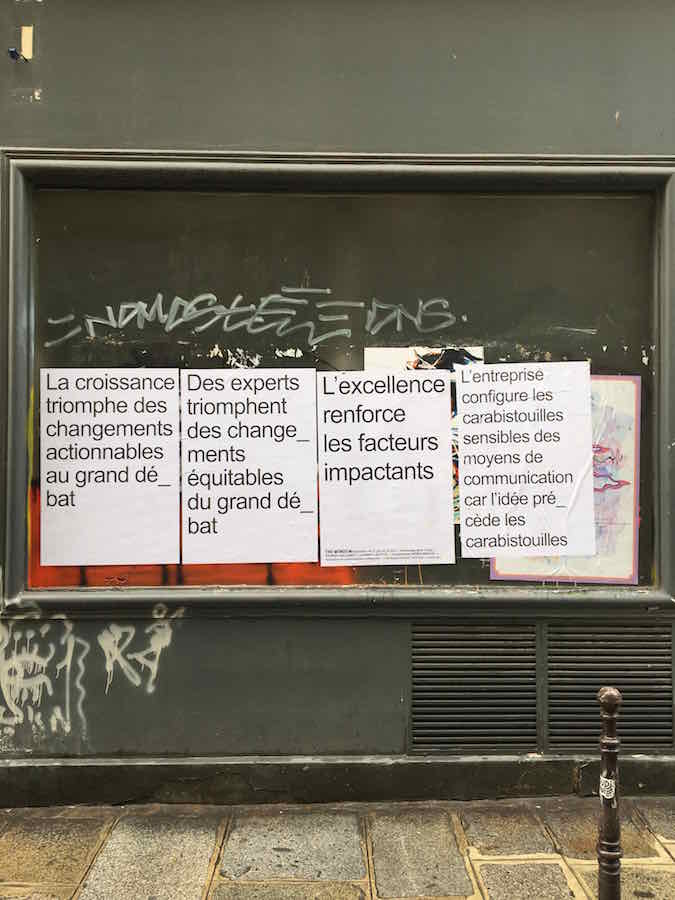 La croissance
triomphe des
changements
actionnables
au grand dé_
bat
Des experts
triomphent
des change_
ments
équitables
du grand dé_
bat
L'excellence
renforce
les facteurs
impactants
L'entreprise
configure les
carabistouilles
sensibles des
moyens de
communication
car l'idée pré_
cède les
carabistouilles